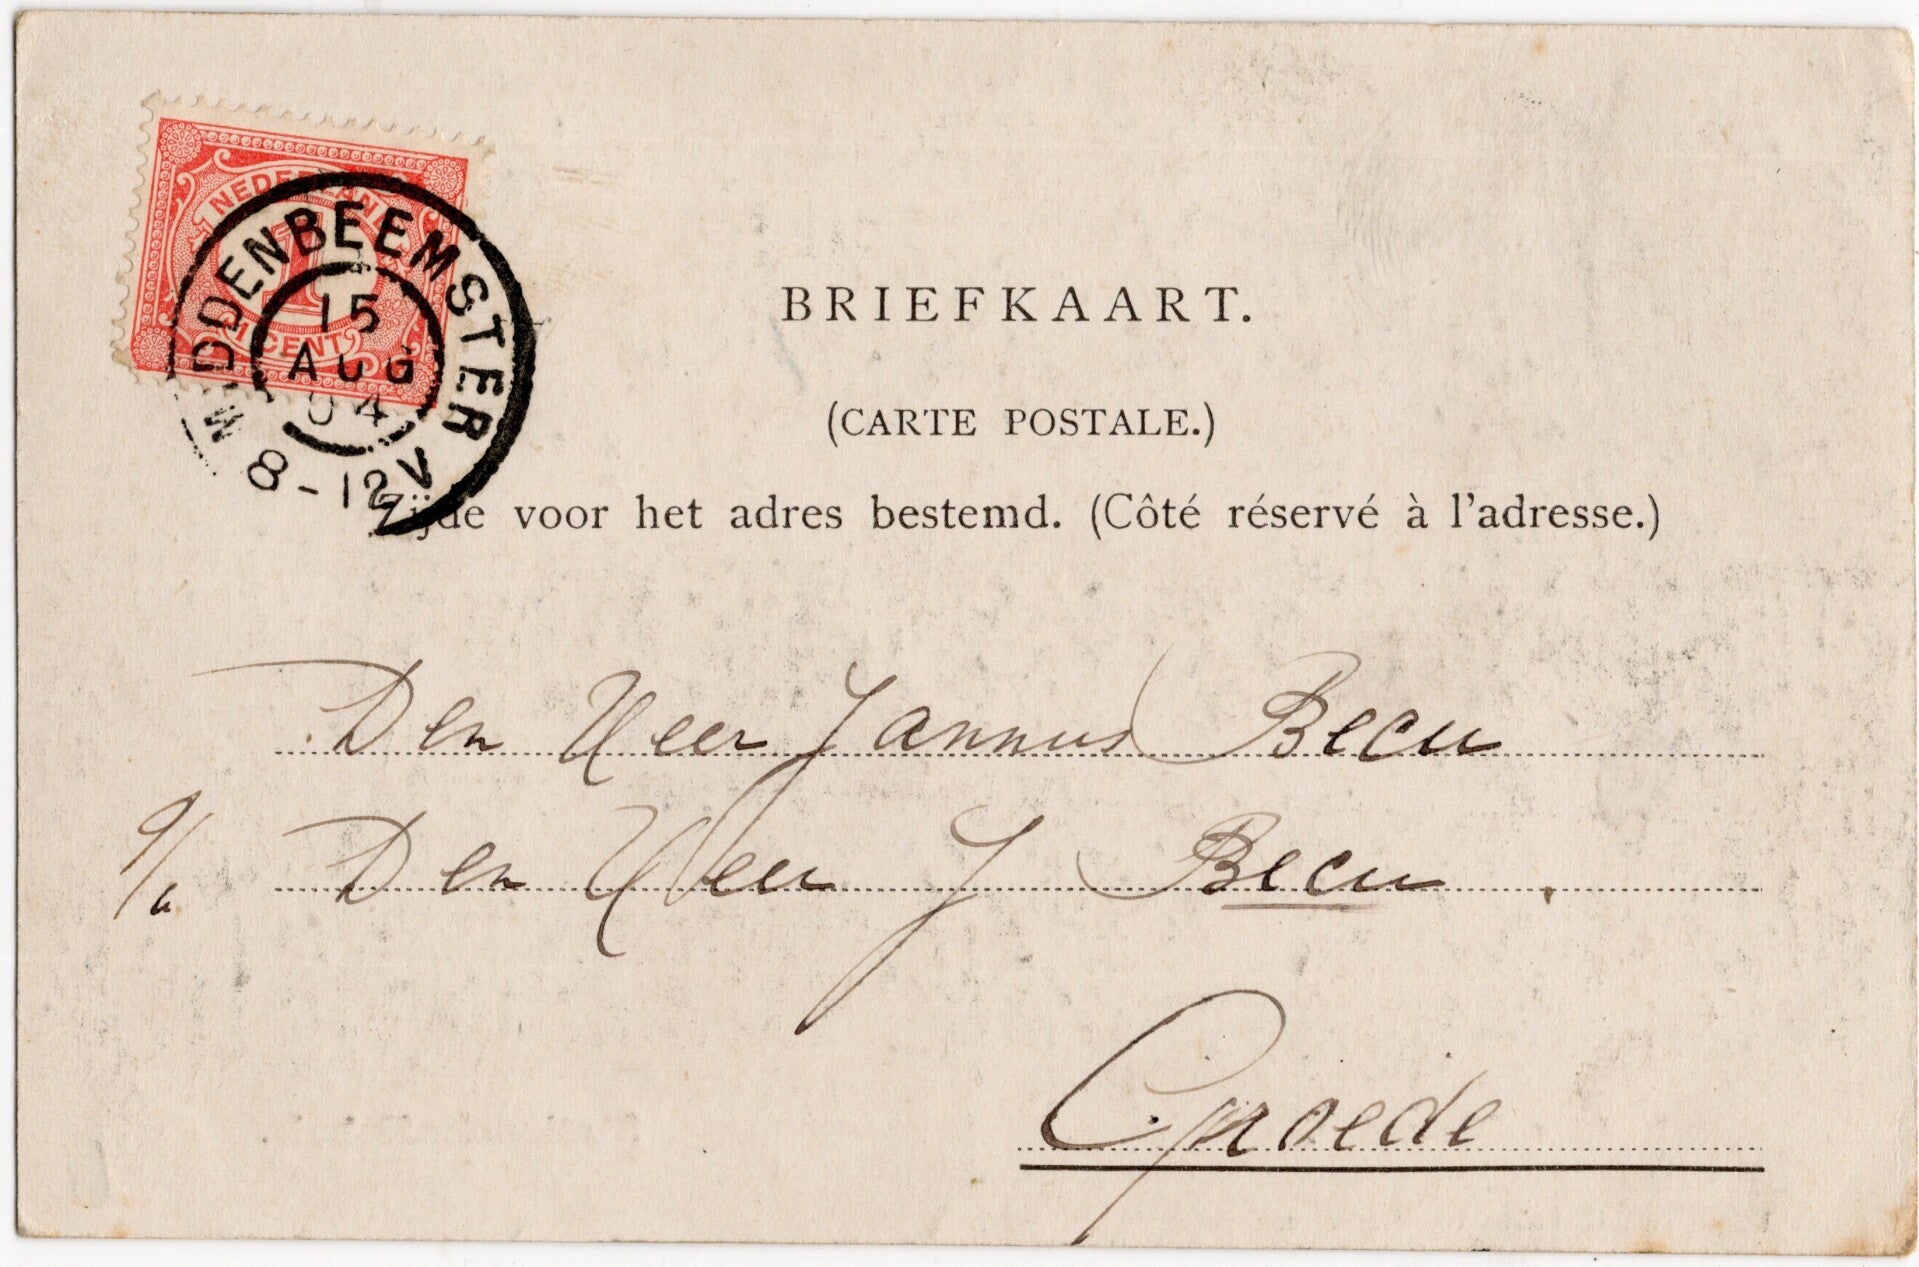 NEDERLAND
1
1 CENT
MIDDENBEEMSTER
15
AUG
04
8-12V
BRIEFKAART.
(CARTE POSTALE.)
Zijde voor het adres bestemd. (Côté réservé à l'adresse.)
Den Heer Jannus Becu
p/a Den Heer J Becu
Groede